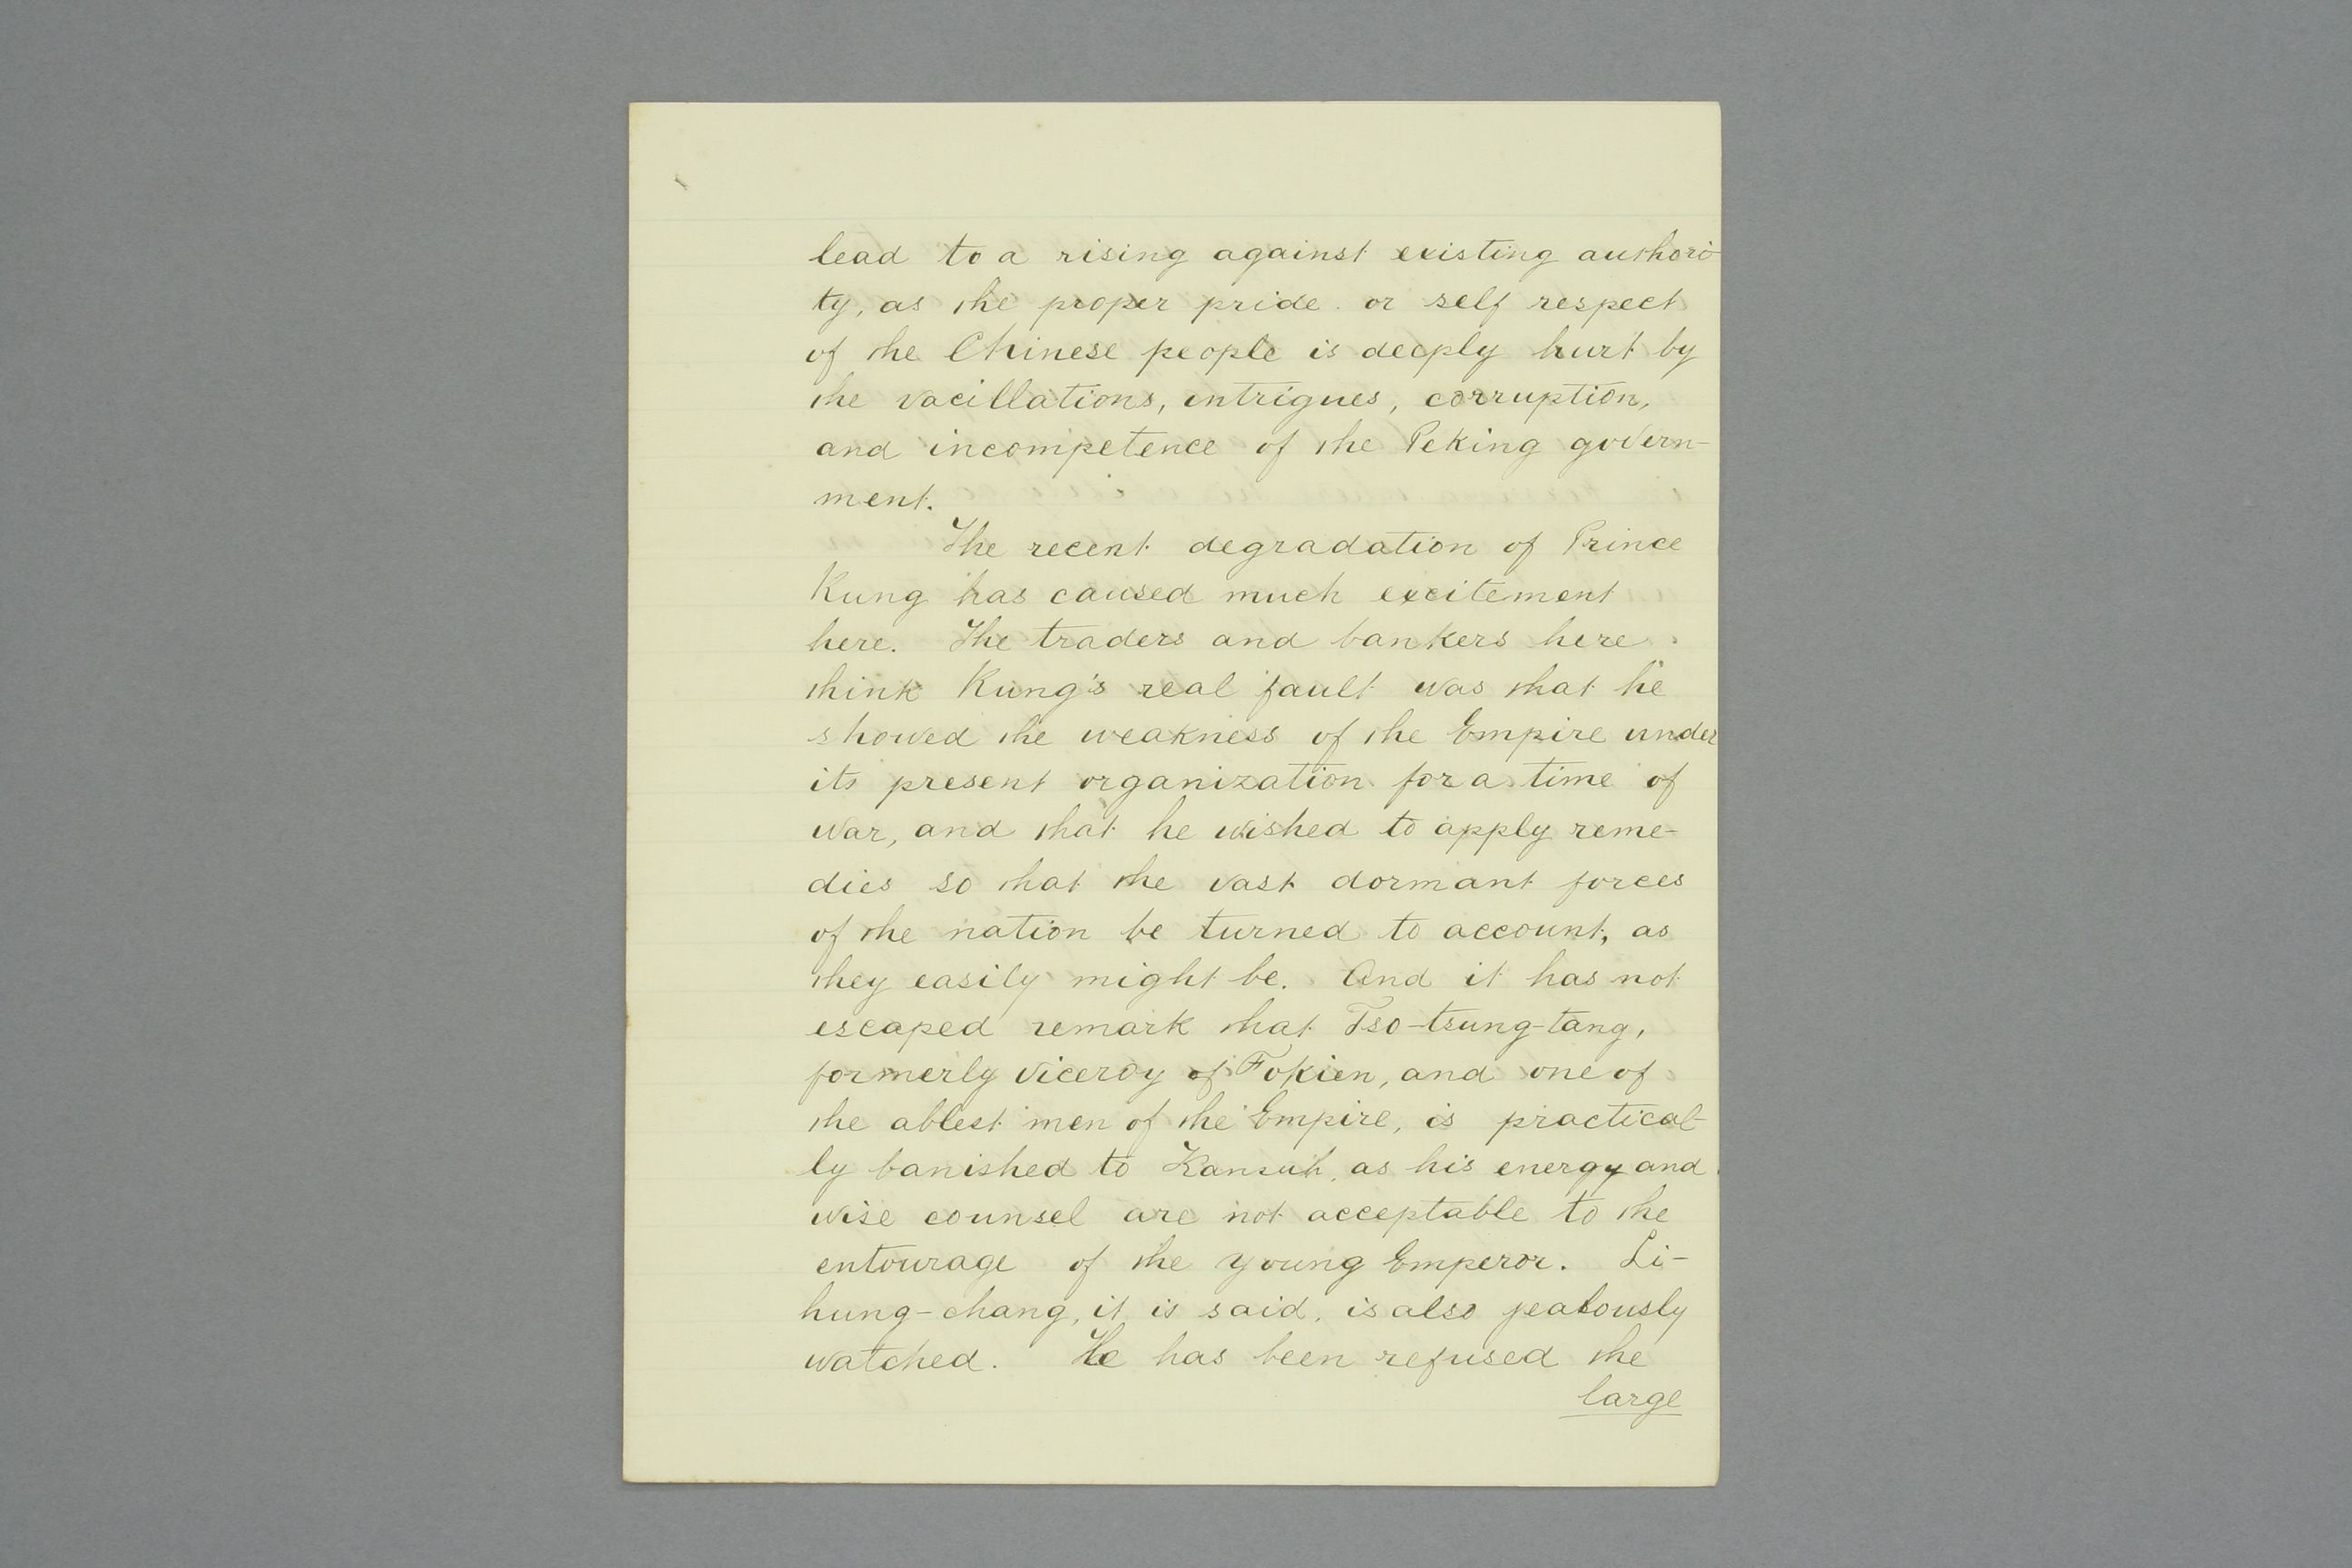 lead to a rising against existing authori-
ty, as the proper pride or self respect
of the Chinese people is deeply hurt by
the vacillations, intrigues, corruption,
and incompetence of the Peking govern-
ment.
The recent degradation of Prince
Kung has caused much excitement
here. The traders and bankers here
think Kung's real fault was that he
showed the weakness of the Empire under
its present organization for a time of
war, and that he wished to apply reme-
dies so that the vast dormant forces
of the nation be turned to account, as
they easily might be. And it has not
escaped remark that Tso-tsung-tang,
formerly viceroy of Fokien, and one of
the ablest men of the Empire, is practical-
ly banished to Kansuh, as his energy and
wise counsel are not acceptable to the
entourage of the young Emperor. Li-
hung-chang, it is said, is also jealously
watched. He has been refused the
large